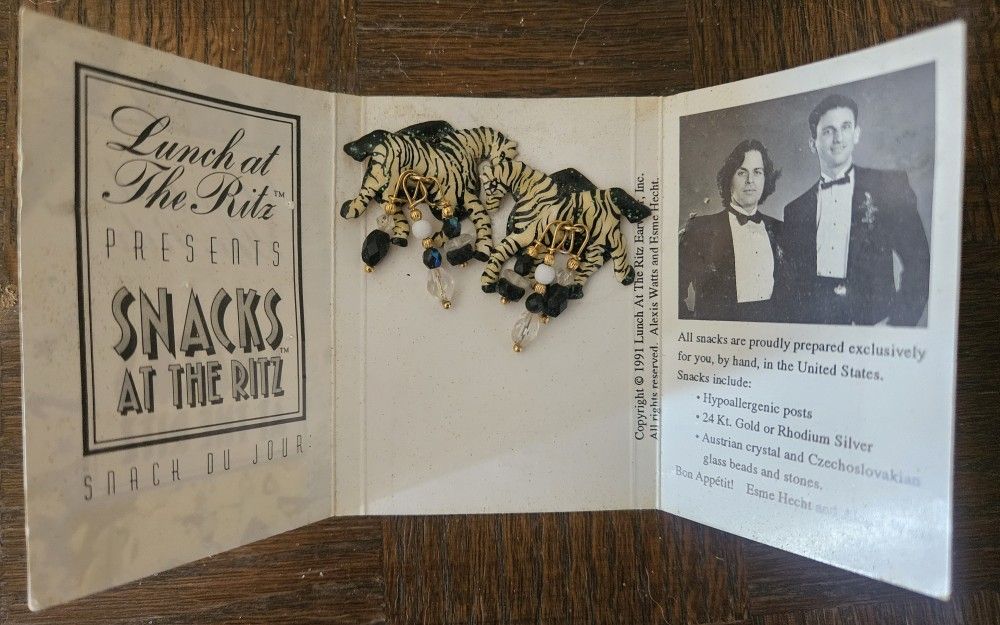 Lunch at
The Ritz™
PRESENTS
SNACKS
AT THE RITZ™
SNACK DU JOUR:
Copyright © 1991 Lunch At The Ritz Inc.
All rights reserved. Alexis Watts and Esme Hecht.
All snacks are proudly prepared exclusively
for you, by hand, in the United States.
Snacks include:
• Hypoallergenic posts
• 24 Kt. Gold or Rhodium Silver
• Austrian crystal and Czechoslovakian
glass beads and stones.
Bon Appétit! Esme Hecht and